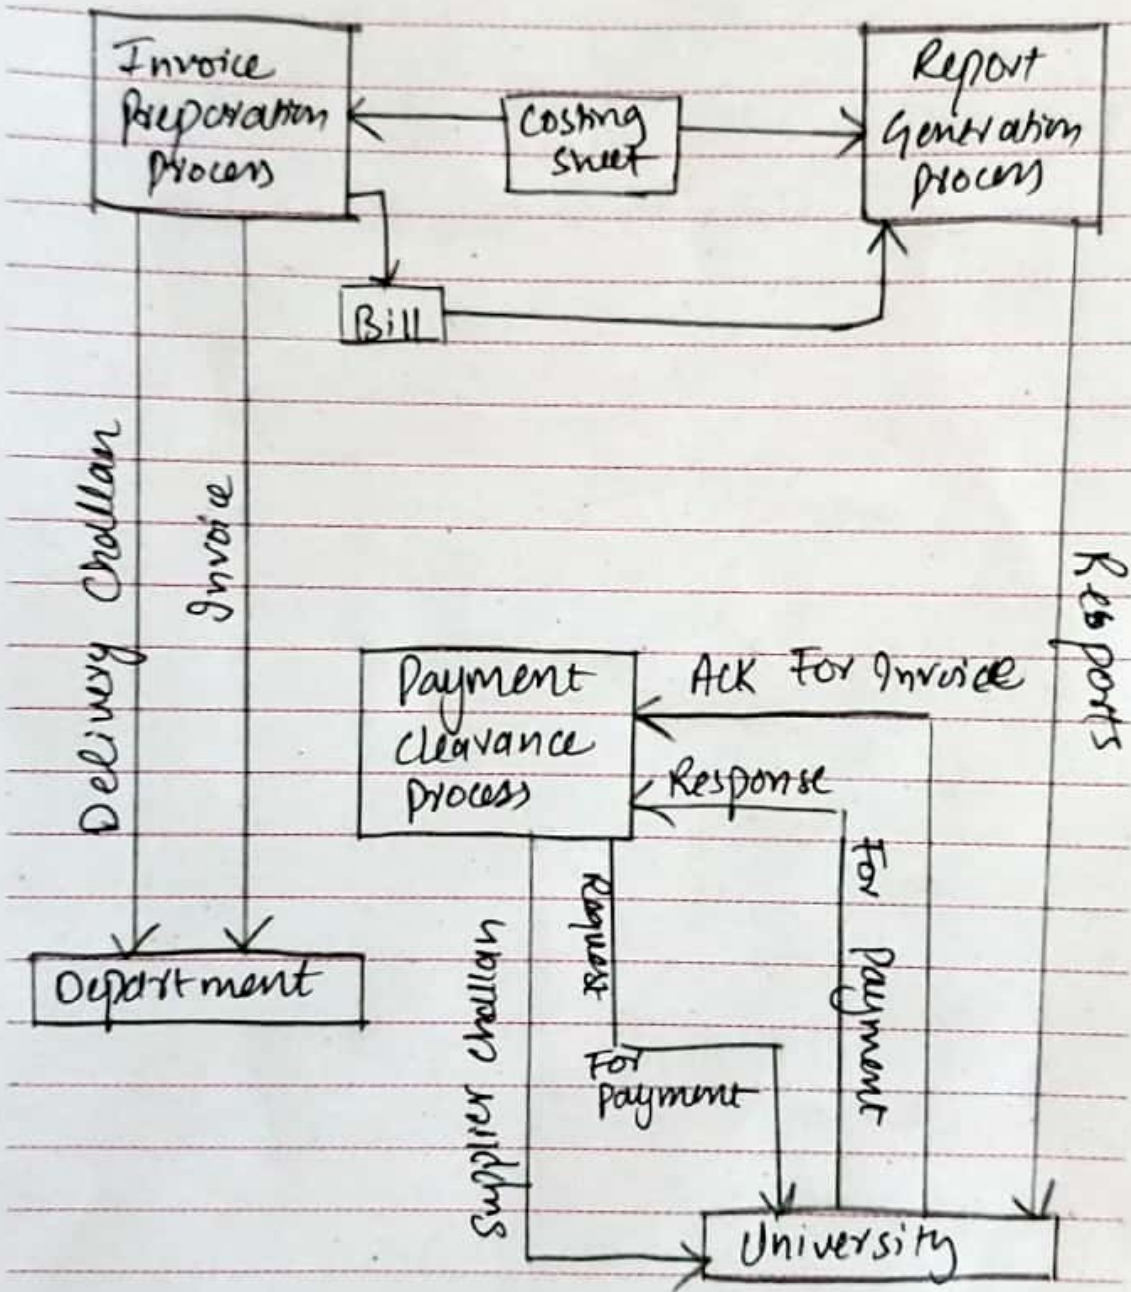 Invoice
Preparation
process
Costing
sheet
Report
Generation
process
Bill
Delivery Challan
Invoice
Reports
Payment
Clearance
process
ACK For Invoice
Response
For Payment
Request
For
payment
Supplier Challan
Department
University